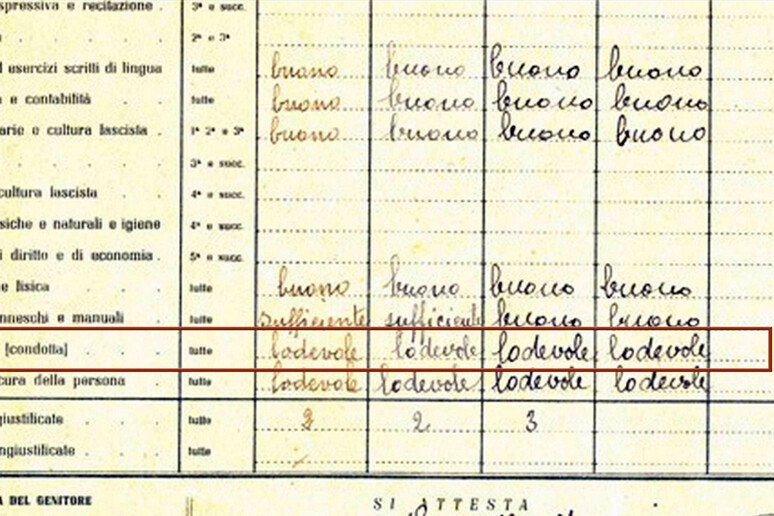 spressiva e recitazione . 3ª e succ.
. . . . 2ª e 3ª
d esercizi scritti di lingua tutte buono buono buono buono
a e contabilità . . tutte buono buono buono buono
arie e cultura fascista . 1ª 2ª e 3ª buono buono buono buono
. . . . 3ª e succ.
cultura fascista . . 4ª e succ.
siche e naturali e igiene 4ª e succ.
i diritto e di economia . 5ª e succ.
e fisica . . . tutte buono buono buono buono
nneschi e manuali . tutte sufficiente sufficiente buono buono
[condotta] . . . tutte lodevole lodevole lodevole lodevole
cura della persona . tutte lodevole lodevole lodevole lodevole
giustificate . . . tutte 2 2 3
ngiustificate . . . tutte
A DEL GENITORE SI ATTESTA